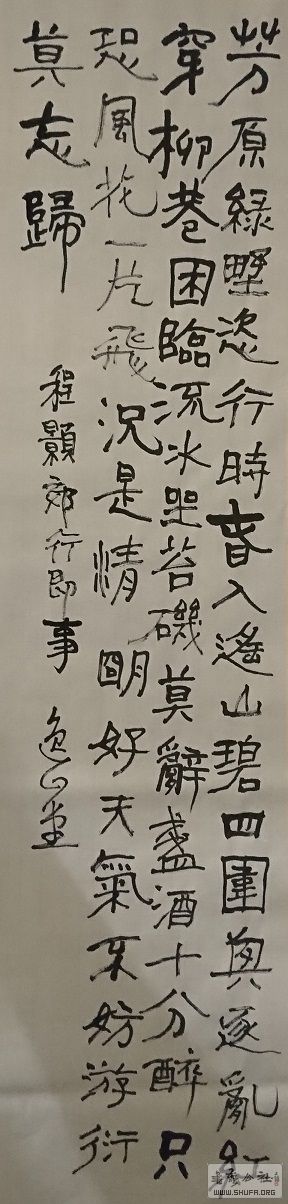 芳原綠墅恣行時春入遙山碧四圍興逐亂紅
穿柳巷困臨流水坐苔磯莫辭盞酒十分醉只
恐風花一片飛況是清朙好天氣不妨游衍
莫忘歸
程顥郊行即事
WWW.SHUFA.ORG